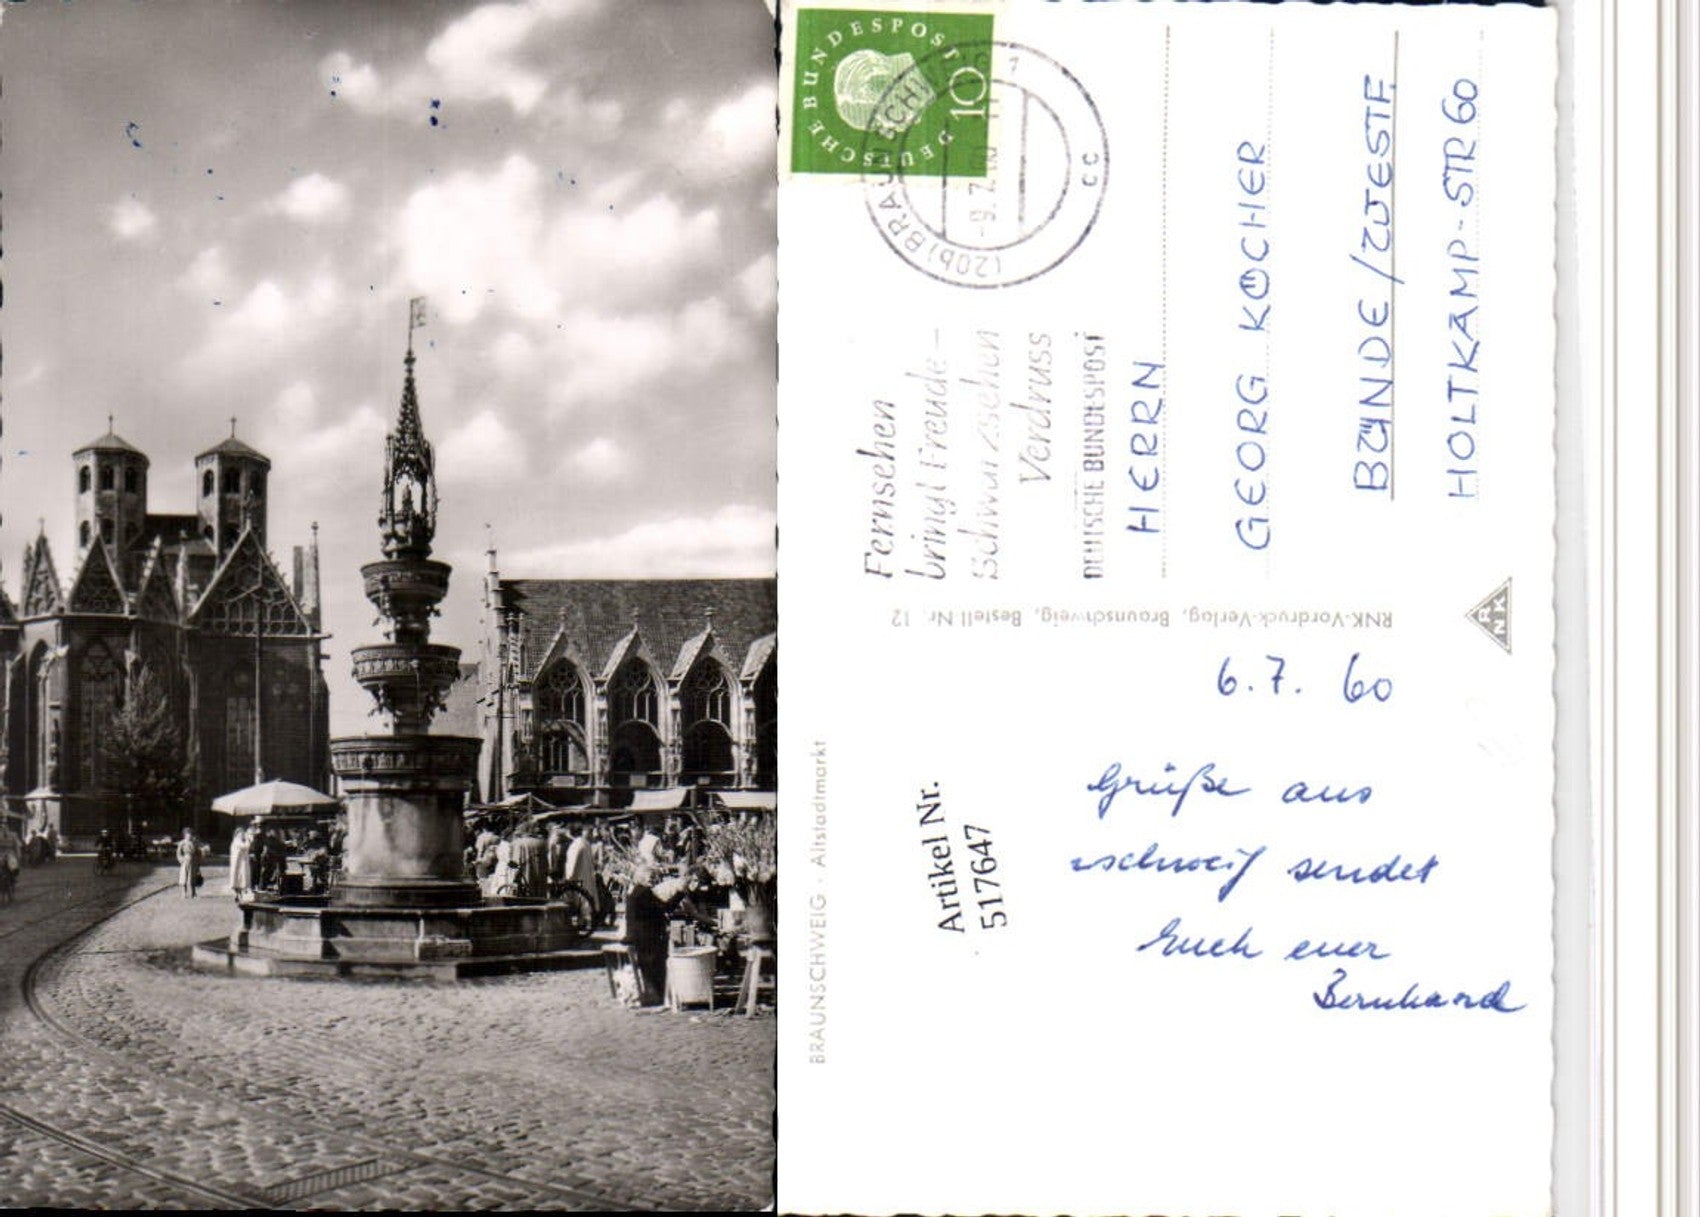 DEUTSCHE BUNDESPOST
10
(20b) BRAUNSCHWEIG
-9.7.60
cc
Fernsehen
bringt Freude –
Schwarzsehen
Verdruss
DEUTSCHE BUNDESPOST
HERRN
GEORG KÖCHER
BÜNDE/WESTF.
HOLTKAMP-STR 60
RNK-Vordruck-Verlag, Braunschweig, Bestell-Nr. 12
RNK
BRAUNSCHWEIG · Altstadtmarkt
Artikel Nr.
517647
6.7. 60
Grüße aus
schweig sendet
Euch euer
Bernhard